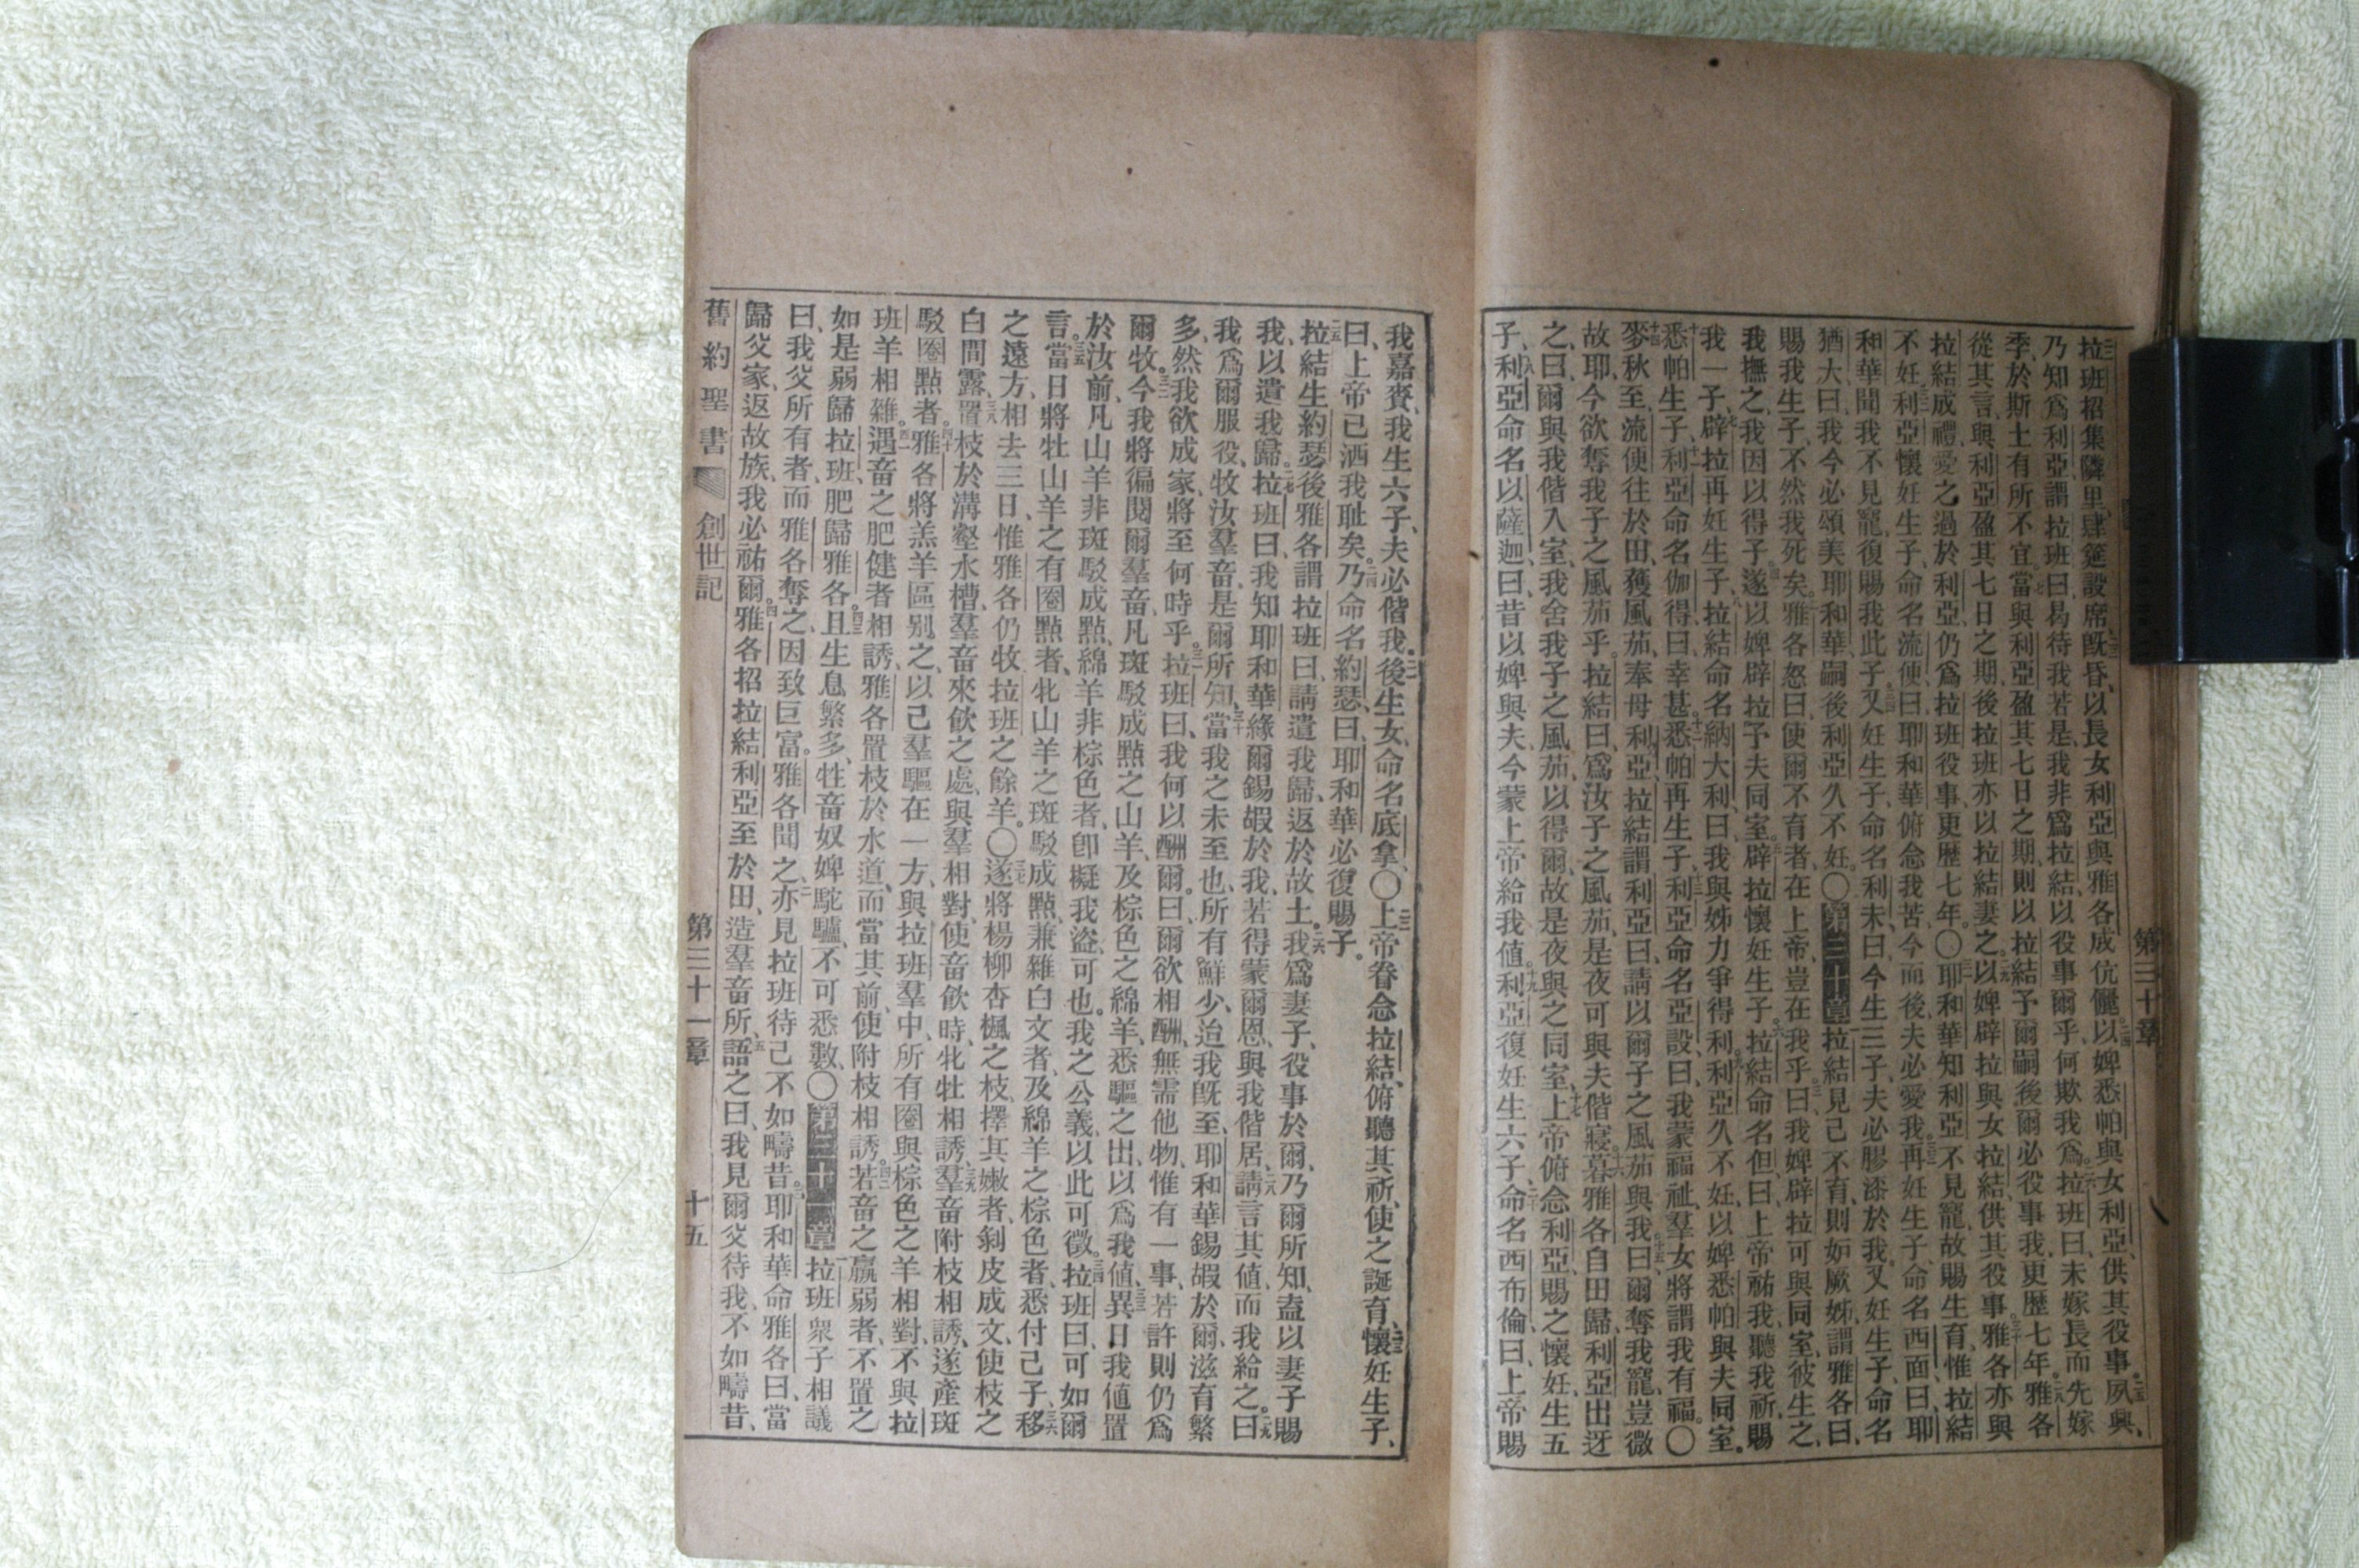 第三十章
拉班招集隣里、肆筵設席、旣昏、以長女利亞與雅各成伉儷、以婢悉帕與女利亞、供其役事。夙興、
乃知爲利亞、謂拉班曰、曷待我若是、我非爲拉結、以役事爾乎、何欺我爲。拉班曰、未嫁長而先嫁
季、於斯土有所不宜。當與利亞盈其七日之期、則以拉結予爾、嗣後爾必役事我、更歷七年。雅各
從其言、與利亞盈其七日之期、後拉班亦以拉結妻之、以婢辟拉與女拉結、供其役事。雅各亦與
拉結成禮、愛之過於利亞、仍爲拉班役事、更歷七年。〇耶和華知利亞不見寵、故賜生育、惟拉結
不妊。利亞懷妊生子、命名流便、曰、耶和華俯念我苦、今而後夫必愛我。再妊生子、命名西面、曰、耶
和華聞我不見寵、復賜我此子。又妊生子、命名利未、曰、今生三子、夫必膠漆於我。又妊生子、命名
猶大、曰、我今必頌美耶和華、嗣後利亞久不妊。〇第三十章拉結見己不育、則妬厥姊、謂雅各曰、
賜我生子、不然我死矣。雅各怒曰、使爾不育者、在上帝、豈在我乎。曰、我婢辟拉可與同室、彼生之、
我撫之、我因以得子。遂以婢辟拉予夫同室。辟拉懷妊生子。拉結命名但、曰、上帝祐我、聽我祈、賜
我一子。辟拉再妊生子、拉結命名納大利、曰、我與姊力爭得利。利亞久不妊、以婢悉帕與夫同室。
悉帕生子、利亞命名伽得、曰、幸甚。悉帕再生子、利亞命名亞設、曰、我蒙福祉、羣女將謂我有福。〇
麥秋至、流便往於田、獲風茄、奉母利亞、拉結謂利亞曰、請以爾子之風茄與我。曰、爾奪我寵、豈微
故耶、今欲奪我子之風茄乎。拉結曰、爲汝子之風茄、是夜可與夫偕寢。暮雅各自田歸、利亞出迓
之、曰、爾與我偕入室、我舍我子之風茄、以得爾、故是夜與之同室、上帝俯念利亞、賜之懷妊、生五
子、利亞命名以薩迦、曰、昔以婢與夫、今蒙上帝給我値。利亞復妊、生六子、命名西布倫、曰、上帝賜
我嘉賚、我生六子、夫必偕我。後生女、命名底拿、〇上帝眷念拉結、俯聽其祈、使之誕育、懷妊生子、
曰、上帝已洒我耻矣。乃命名約瑟、曰、耶和華必復賜子。
拉結生約瑟後、雅各謂拉班曰、請遣我歸、返於故土。我爲妻子、役事於爾、乃爾所知、盍以妻子賜
我、以遣我歸。拉班曰、我知耶和華緣爾錫嘏於我、若得蒙爾恩、與我偕居、請言其値、而我給之。曰、
我爲爾服役、牧汝羣畜、是爾所知、當我之未至也、所有鮮少、迨我旣至、耶和華錫嘏於爾、滋育繁
多、然我欲成家、將至何時乎。拉班曰、我何以酬爾。曰、爾欲相酬、無需他物、惟有一事、若許則仍爲
爾牧。今我將徧閱爾羣畜、凡斑駁成點之山羊、及棕色之綿羊、悉驅之出、以爲我値、異日我値置
於汝前、凡山羊非斑駁成點、綿羊非棕色者、卽擬我盜、可也。我之公義、以此可徵。拉班曰、可如爾
言。當日將牡山羊之有圈點者、牝山羊之斑駁成點、兼雜白文者、及綿羊之棕色者、悉付己子、移
之遠方、相去三日、惟雅各仍牧拉班之餘羊。〇遂將楊柳杏楓之枝、擇其嫩者、剝皮成文、使枝之
白間露、置枝於溝壑水槽、羣畜來飮之處、與羣相對、使畜飮時、牝牡相誘、羣畜附枝相誘、遂產斑
駁圈點者。雅各將羔羊區別之、以己羣驅在一方、與拉班羣中、所有圈與棕色之羊相對、不與拉
班羊相雜。遇畜之肥健者相誘、雅各置枝於水道、而當其前、使附枝相誘。若畜之羸弱者、不置之
如是弱歸拉班、肥歸雅各。且生息繁多、牲畜奴婢駝驢、不可悉數、〇第三十一章拉班衆子相議
曰、我父所有者、而雅各奪之、因致巨富。雅各聞之、亦見拉班待己不如疇昔。耶和華命雅各曰、當
歸父家、返故族、我必祐爾。雅各招拉結利亞至於田、造羣畜所、語之曰、我見爾父待我、不如疇昔、
舊約聖書 創世記 第三十一章 十五